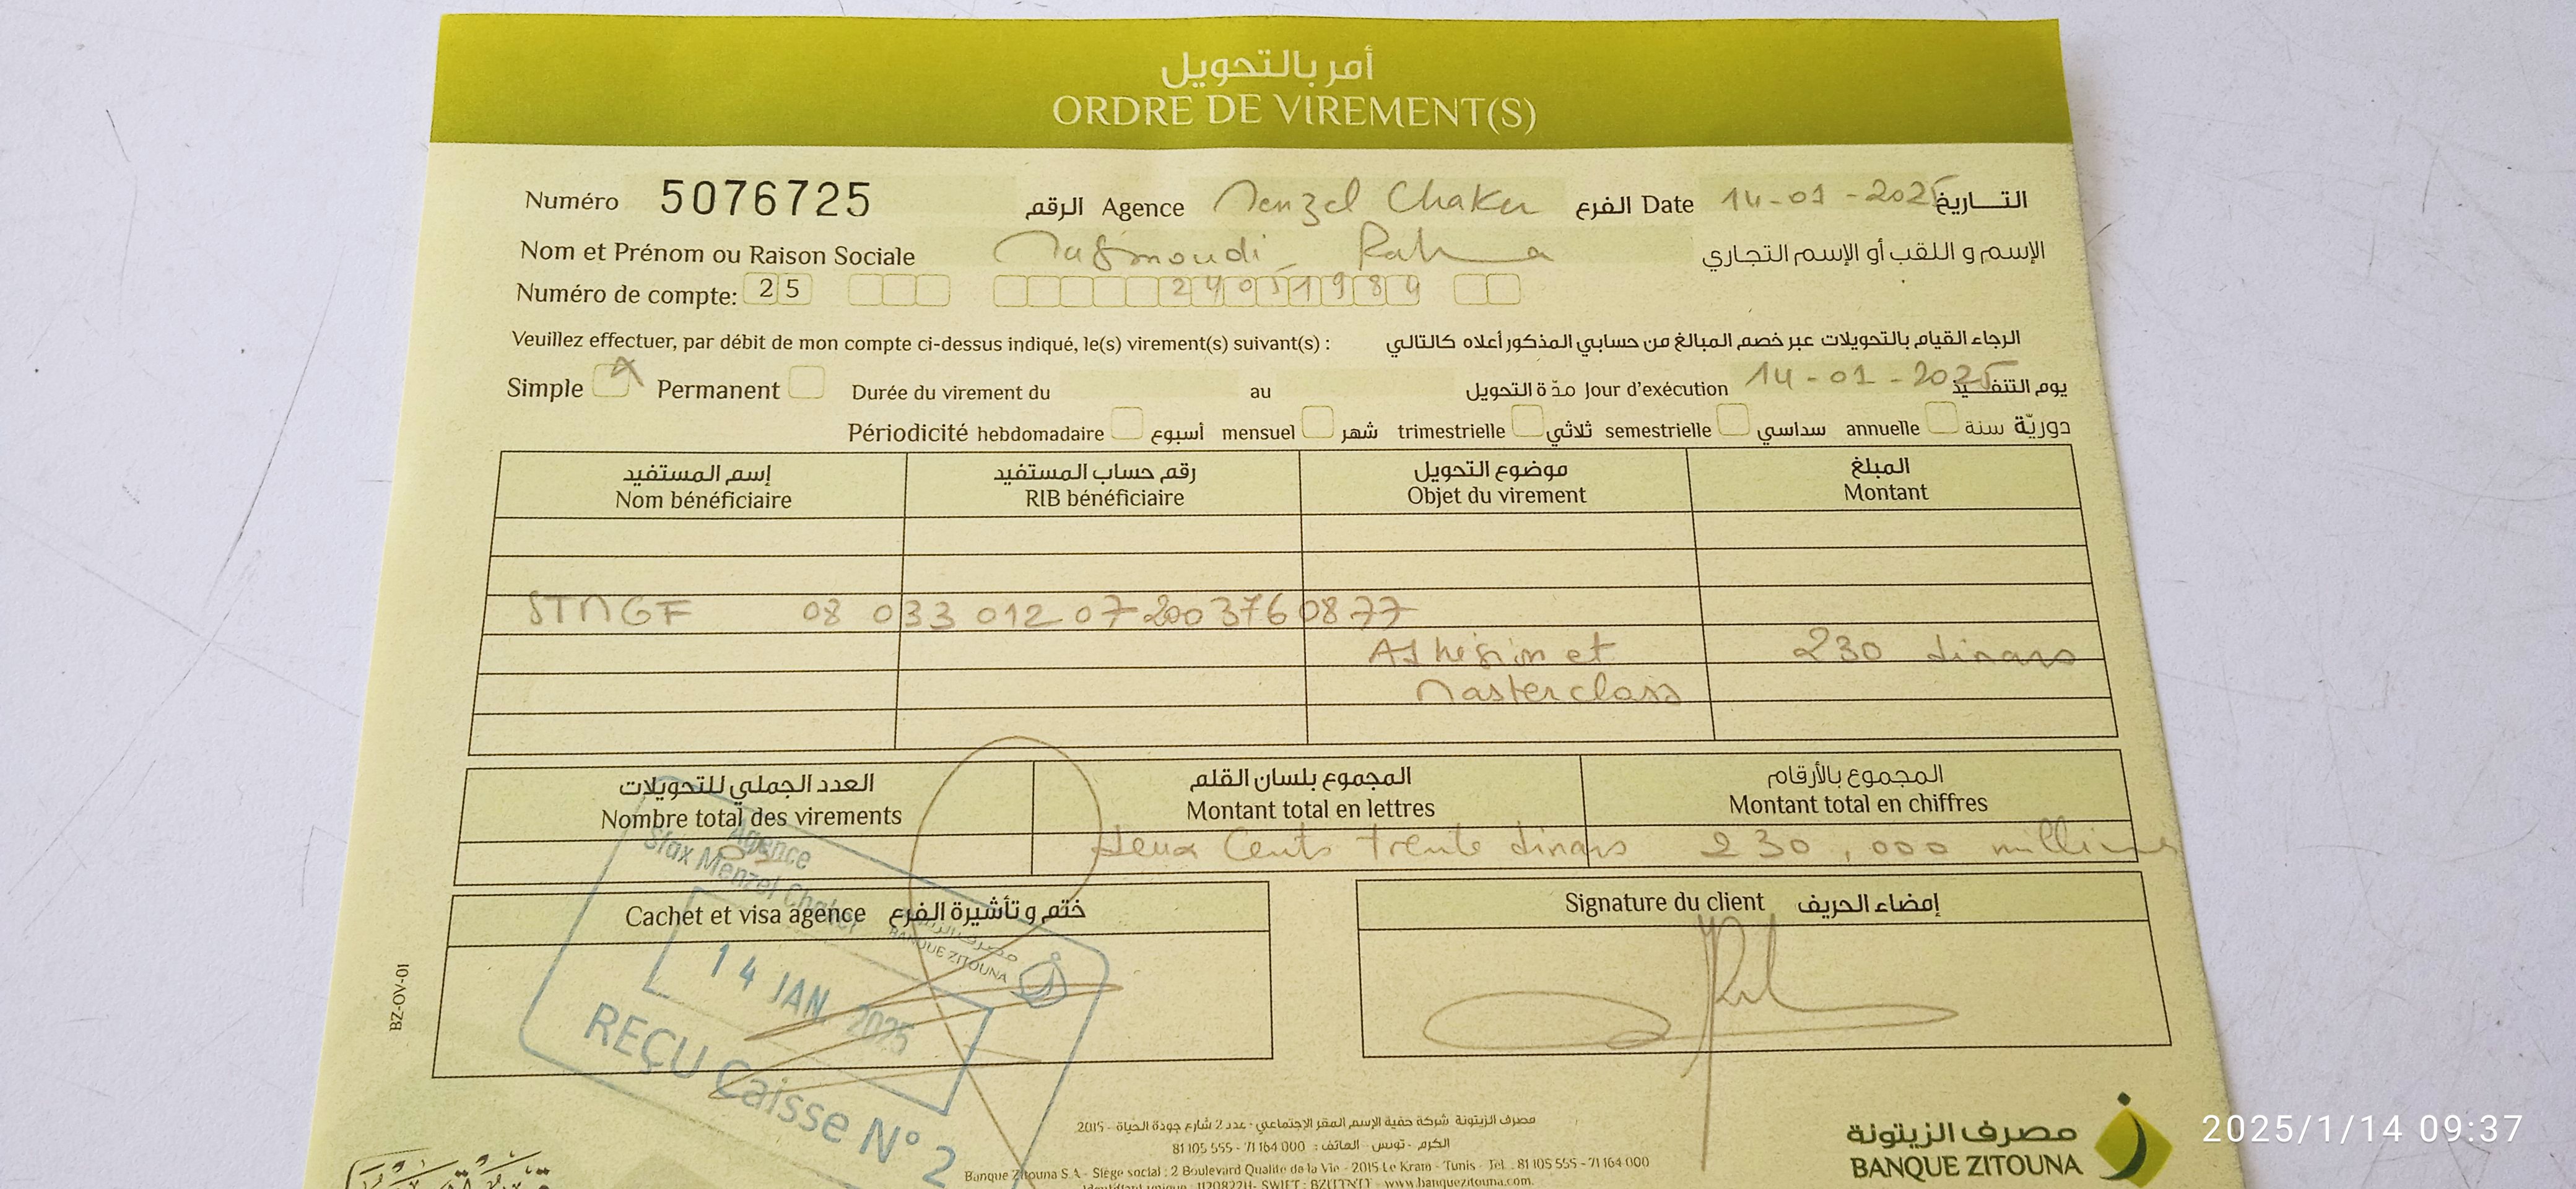 أمر بالتحويل
ORDRE DE VIREMENT(S)
Numéro 5076725 الرقم Agence Menzel Chaker الفرع Date 14-01-2025 التاريخ
Nom et Prénom ou Raison Sociale Masmoudi Rahma الإسم و اللقب أو الإسم التجاري
Numéro de compte: 25 24051984
Veuillez effectuer, par débit de mon compte ci-dessus indiqué, le(s) virement(s) suivant(s) : الرجاء القيام بالتحويلات عبر خصم المبالغ من حسابي المذكور أعلاه كالتالي
Simple X Permanent Durée du virement du au مدّة التحويل Jour d'exécution 14-01-2025 يوم التنفيذ
Périodicité hebdomadaire أسبوع mensuel شهر trimestrielle ثلاثي semestrielle سداسي annuelle سنة دوريّة
إسم المستفيد رقم حساب المستفيد موضوع التحويل المبلغ
Nom bénéficiaire RIB bénéficiaire Objet du virement Montant
STMGF 08 033 012 07 2003760877
Adhésion et 230 dinars
Masterclass
العدد الجملي للتحويلات المجموع بلسان القلم المجموع بالأرقام
Nombre total des virements Montant total en lettres Montant total en chiffres
deux Cents trente dinars 230,000 millimes
Cachet et visa agence ختم و تأشيرة الفرع Signature du client إمضاء الحريف
Agence
Sfax Menzel Chaker
مصرف الزيتونة
BANQUE ZITOUNA
14 JAN. 2025
REÇU Caisse N° 2
BZ-OV-01
مصرف الزيتونة شركة خفية الإسم المقر الإجتماعي : عدد 2 شارع جودة الحياة - 2015
الكرم - تونس - الهاتف : 000 164 71 - 555 105 81
Banque Zitouna S.A - Siège social : 2 Boulevard Qualité de la Vie - 2015 Le Kram - Tunis - Tél. : 81 105 555 - 71 164 000
Identifiant unique : - SWIFT : BZITTNTT - www.banquezitouna.com
مصرف الزيتونة
BANQUE ZITOUNA
2025/1/14 09:37